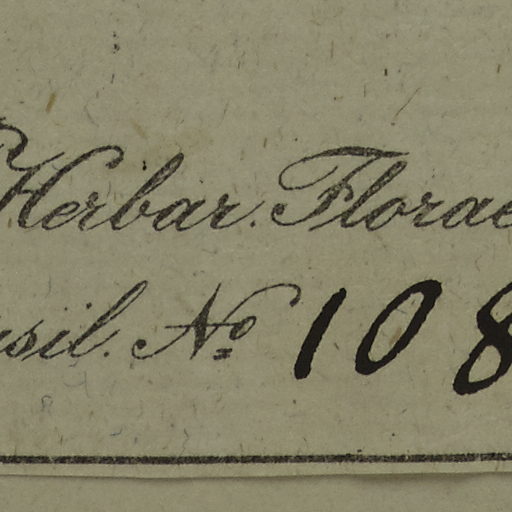 Herbar. Florae
sil. No 108